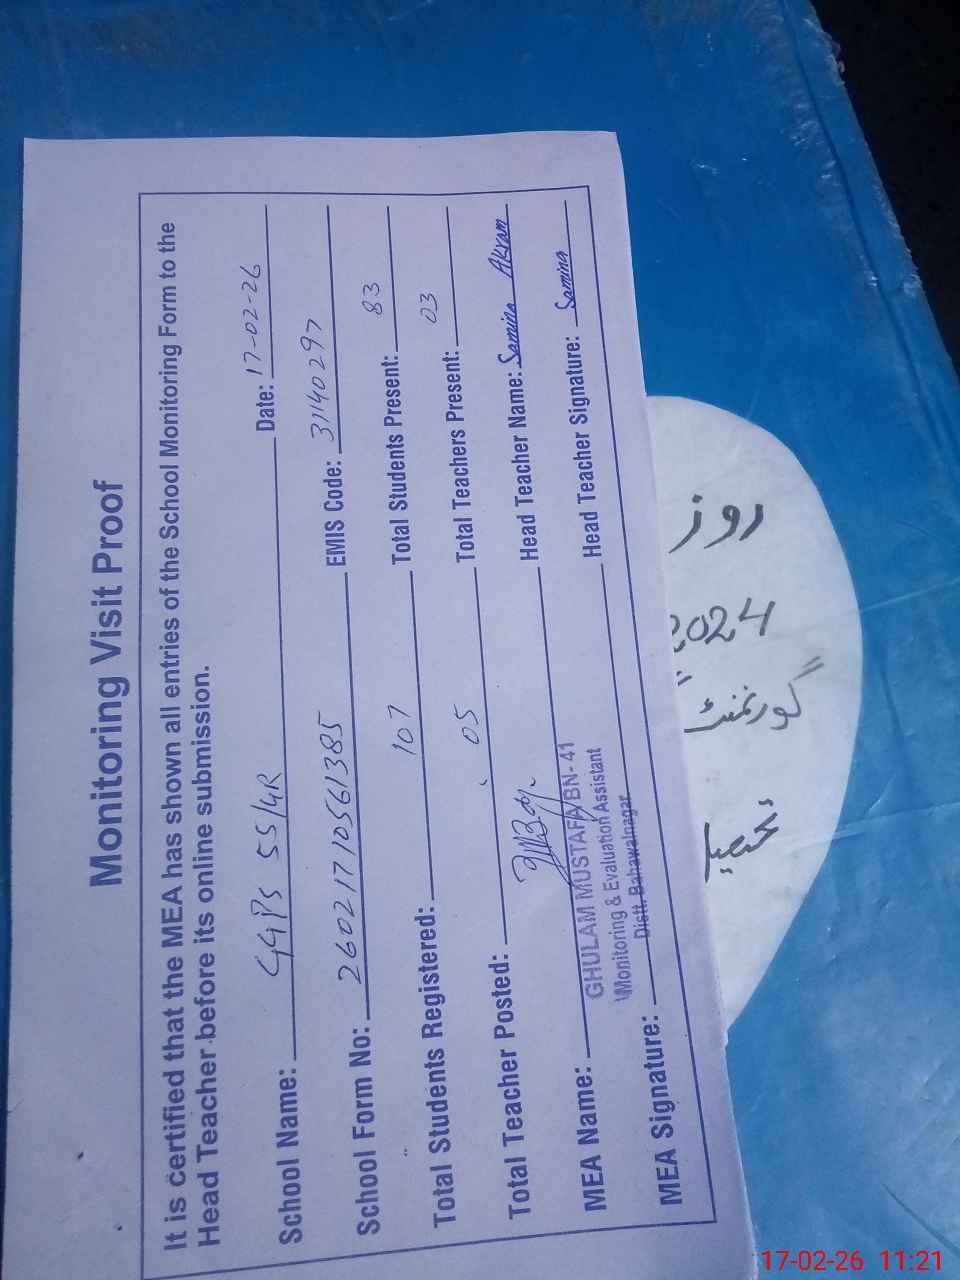 Monitoring Visit Proof
It is certified that the MEA has shown all entries of the School Monitoring Form to the
Head Teacher before its online submission.
School Name: GGPS 55/4R Date: 17-02-26
School Form No: 260217110561385 EMIS Code: 31140297
Total Students Registered: 107 Total Students Present: 83
Total Teacher Posted: 05 Total Teachers Present: 03
MEA Name: Head Teacher Name: Samina Akram
GHULAM MUSTAFA BN-41
Monitoring & Evaluation Assistant
Distt. Bahawalnagar
MEA Signature: Head Teacher Signature: Samina
روز
2024
گورنمنٹ
تحصیل
17-02-26 11:21